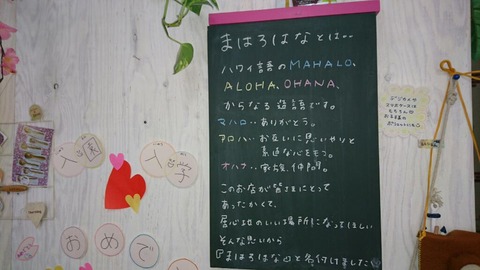 まはろはなとは…
ハワイ語のMAHALO、
ALOHA、OHANA、
からなる造語です。
マハロ‥ありがとう。
アロハ‥お互いに思いやりと
素直な心をもつ。
オハナ‥家族、仲間。
このお店が皆さまにとって
あったかくて、
居心地のいい場所になってほしい
そんな思いから
『まはろはな』と名付けました
入園
入学
おめで